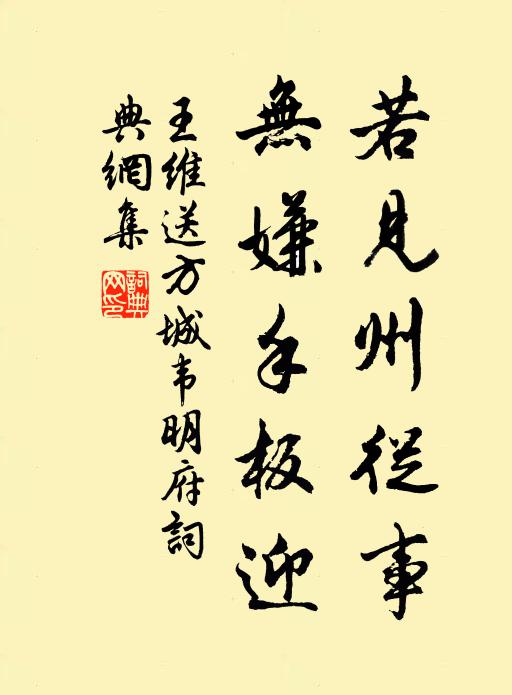 若見州從事
無嫌手板迎
王維送方城韦明府詞
典網集
詞典網印